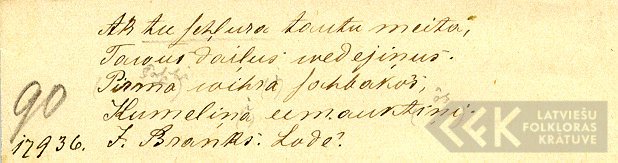 Ak tu schkura tautu meita,
Tawus dailus wedejinus.
Pirmā wihra sahbakos,
Kumeliņa eemauktiņi.
90
17936. J. Branks. Lodē.
LATVIEŠU
FOLKLORAS
KRĀTUVE